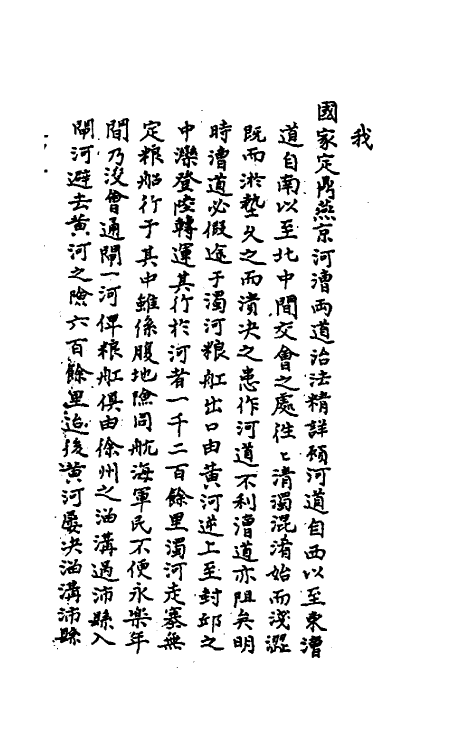 我
國家定鼎燕京河漕両道治法精詳顧河道自西以至東漕
道自南以至北中間交會之處往々清濁混淆始而淺澀
既而淤墊久之而潰决之患作河道不利漕道亦阻矣明
時漕道必假途于濁河粮舡出口由黄河逆上至封邱之
中灤登陸轉運其行於河者一千二百餘里濁河走塞無
定粮船行于其中雖係腹地險同航海軍民不便永樂年
間乃浚會通閘一河俾粮舡俱由徐州之油溝過沛縣入
閘河避去黄河之險六百餘里迨後黄河屡决油溝沛縣